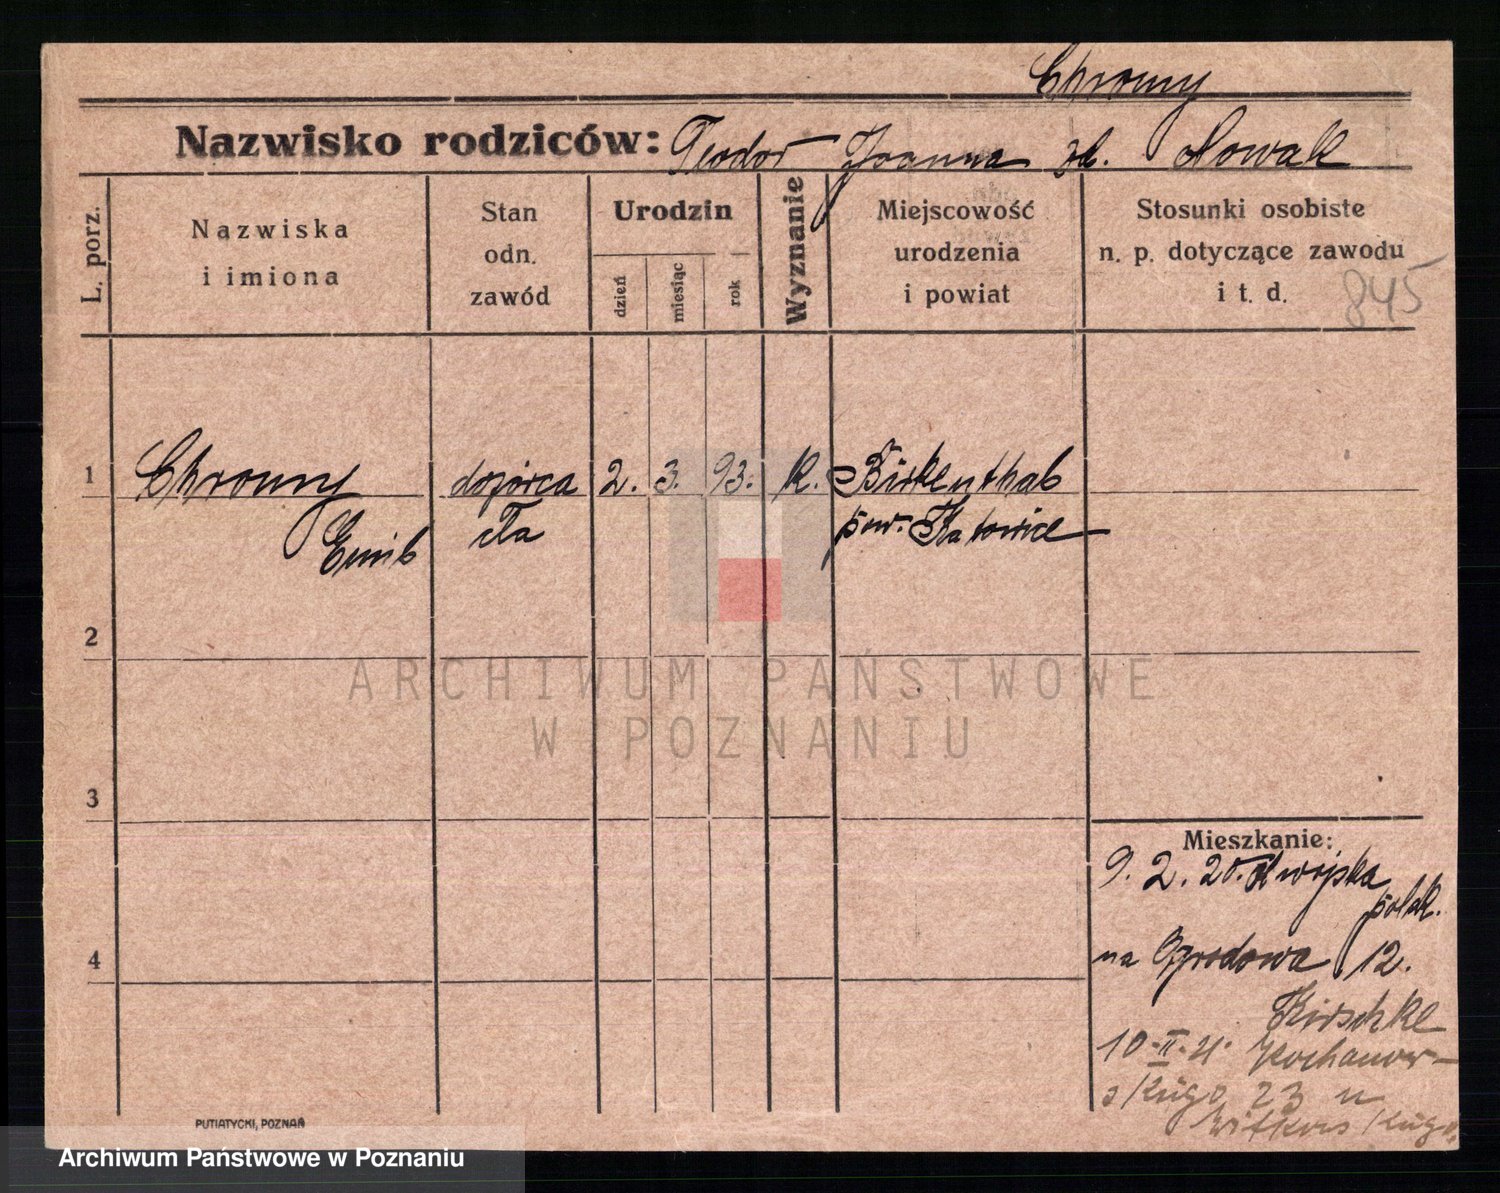 Chromy
Nazwisko rodziców: Teodor Joanna zd. Nowak
L. porz.
Nazwiska
i imiona
Stan
odn.
zawód
Urodzin
dzień
miesiąc
rok
Wyznanie
Miejscowość
urodzenia
i powiat
Stosunki osobiste
n. p. dotyczące zawodu
i t. d.
845
1 Chromy dozórca 2. 3. 93. k. Birkenthal
Emil cła pow. Katowice
2
3
4
Mieszkanie:
9. 2. 20. z wojska
polsk.
na Ogrodowa 12.
Kirschke
10-II-21. Kochanow-
skiego 23 u
Witkowskiego.
PUTIATYCKI, POZNAŃ
ARCHIWUM PAŃSTWOWE
W POZNANIU
Archiwum Państwowe w Poznaniu